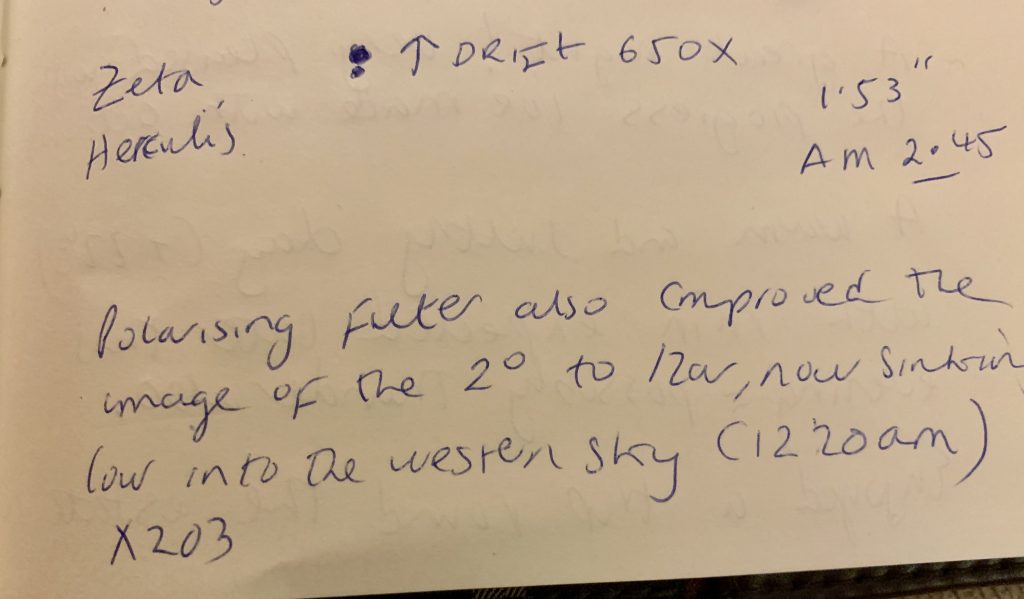 Zeta ↑ DRIFT 650X
Herculis 1.53"
Δm 2.45
Polarising filter also improved the
image of the 2° to Izar, now sinking
low into the western sky (12.20am)
X203